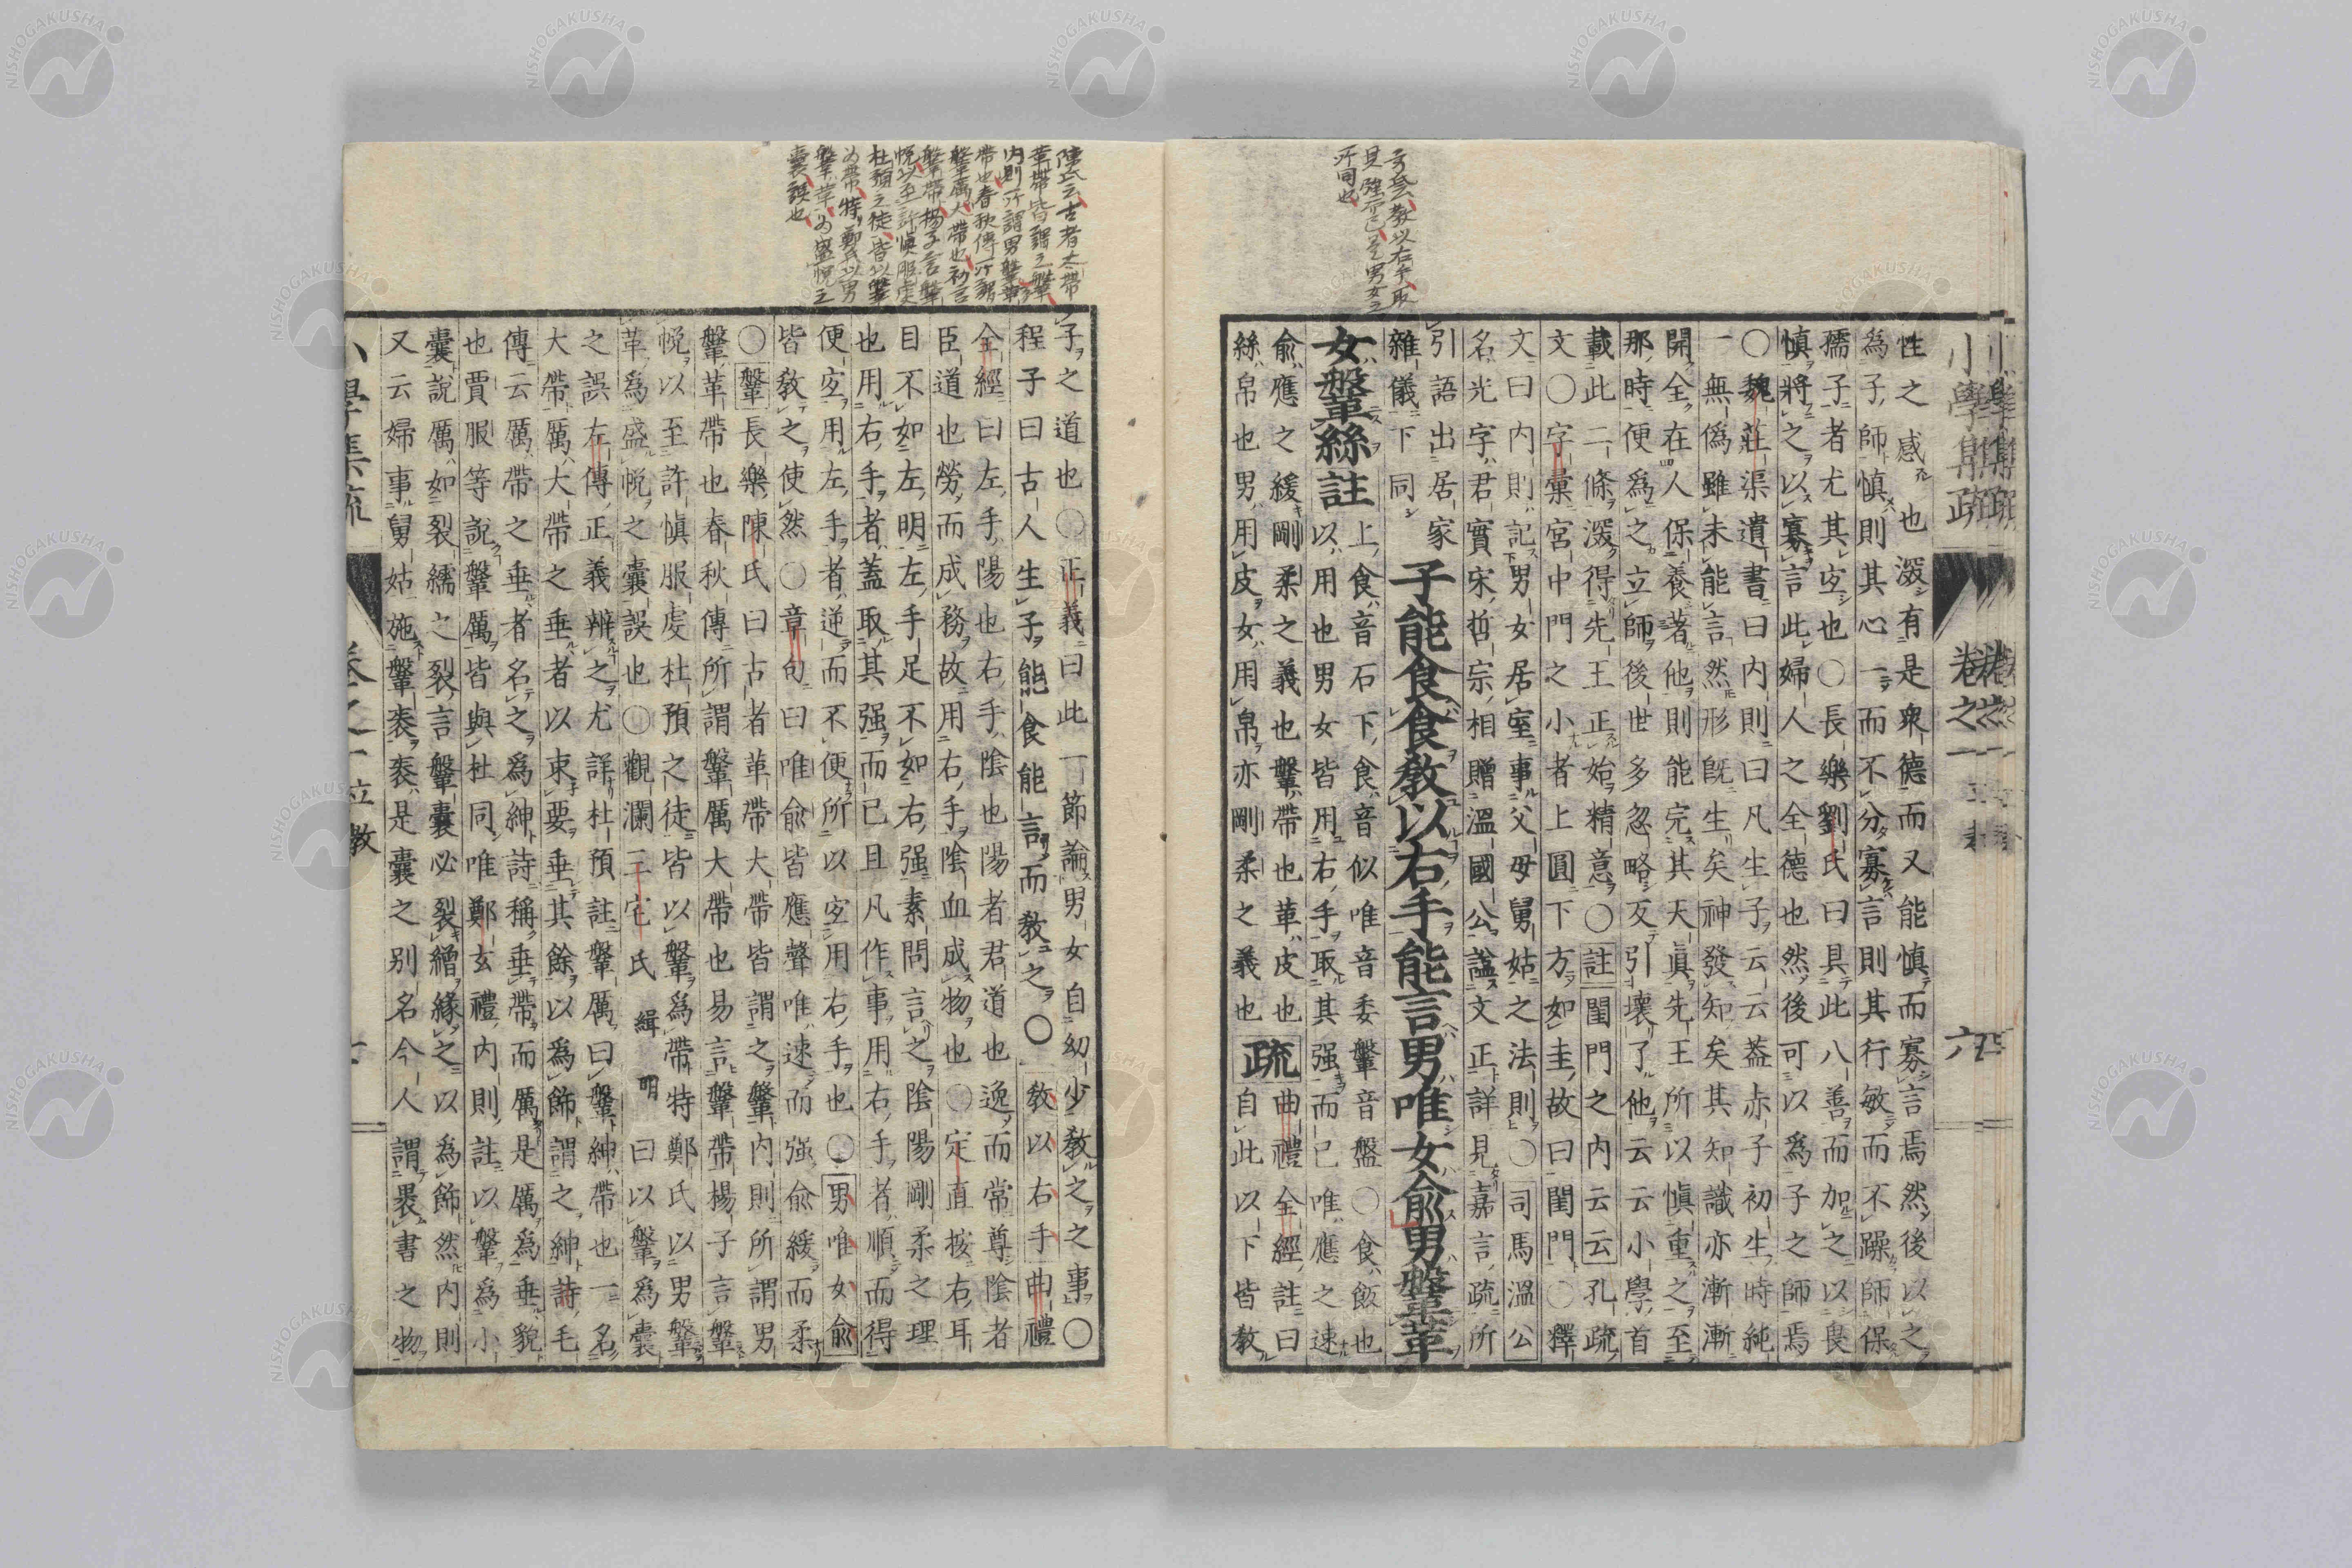 性之感也深有是衆德而又能慎而寡言焉然後以之
為子師慎則其心一而不分寡言則其行敏而不躁師保
孺子者尤其宜也〇長樂劉氏曰具此八善而加之以良
慎將之以寡言此婦人之全德也然後可以為子之師焉
〇魏莊渠遺書曰内則曰凡生子云云蓋赤子初生時純
一無偽雖未能言然形既生矣神發知矣其知識亦漸漸
開全在人保養著他則能完其天真先王所以慎重之至
那時便為之立師後世多忽略反引壞了他云云小學首
載此二條深得先王正始精意〇註閨門之内云云孔疏
文〇字彙宮中門之小者上圓下方如圭故曰閨門〇釋
文曰内則記男女居室事父母舅姑之法則〇司馬溫公
名光字君實宋哲宗相贈溫國公諡文正詳見嘉言疏所
引語出居家
雜儀下同
子能食食教以右手能言男唯女俞男鞶革
女鞶絲註
上食音石下食音似唯音委鞶音盤〇食飯也
以用也男女皆用右手取其强而已唯應之速
俞應之緩剛柔之義也鞶帶也革皮也
絲帛也男用皮女用帛亦剛柔之義也
疏
曲禮全經註曰
自此以下皆教
子之道也〇正義曰此一節論男女自幼少教之之事〇
程子曰古人生子能食能言而教之〇教以右手曲禮
全經曰左手陽也右手陰也陽者君道也逸而常尊陰者
臣道也勞而成務故用右手陰血成物也〇定直按右耳
目不如左明左手足不如右强素問言之陰陽剛柔之理
也用右手者蓋取其强而已且凡作事用右手者順而得
便宜用左手者逆而不便所以宜用右手也〇男唯女俞
皆教之使然〇章句曰唯俞皆應聲唯速而强俞緩而柔
〇鞶長樂陳氏曰古者革帶大帶皆謂之鞶内則所謂男
鞶革帶也春秋傳所謂鞶厲大帶也易言鞶帶楊子言鞶
帨以至許慎服虔杜預之徒皆以鞶為帶特鄭氏以男鞶
革為盛帨之囊誤也〇觀瀾三宅氏緝明曰以鞶為囊
之誤左傳正義辨之尤詳杜預註鞶厲曰鞶紳帶也一名
大帶厲大帶之垂者以束要垂其餘以為飾謂之紳詩毛
傳云厲帶之垂者名之為紳詩稱垂帶而厲是厲為垂貌
也賈服等說鞶厲皆與杜同唯鄭玄禮内則註以鞶為小
囊說厲如裂繻之裂言鞶囊必裂繒緣之以為飾然内則
又云婦事舅姑施鞶袠袠是囊之别名今人謂褁書之物
陳氏云古者大帶
革帶皆謂之鞶
内則所謂男鞶革
帶也春秋傳所謂
鞶厲大帶也初言
鞶帶楊子言鞶
帨以至許慎服虔
杜預之徒皆以鞶
為帶特鄭氏以男
鞶革為盛帨之
囊誤也
小學集疏
卷之一
六
立教